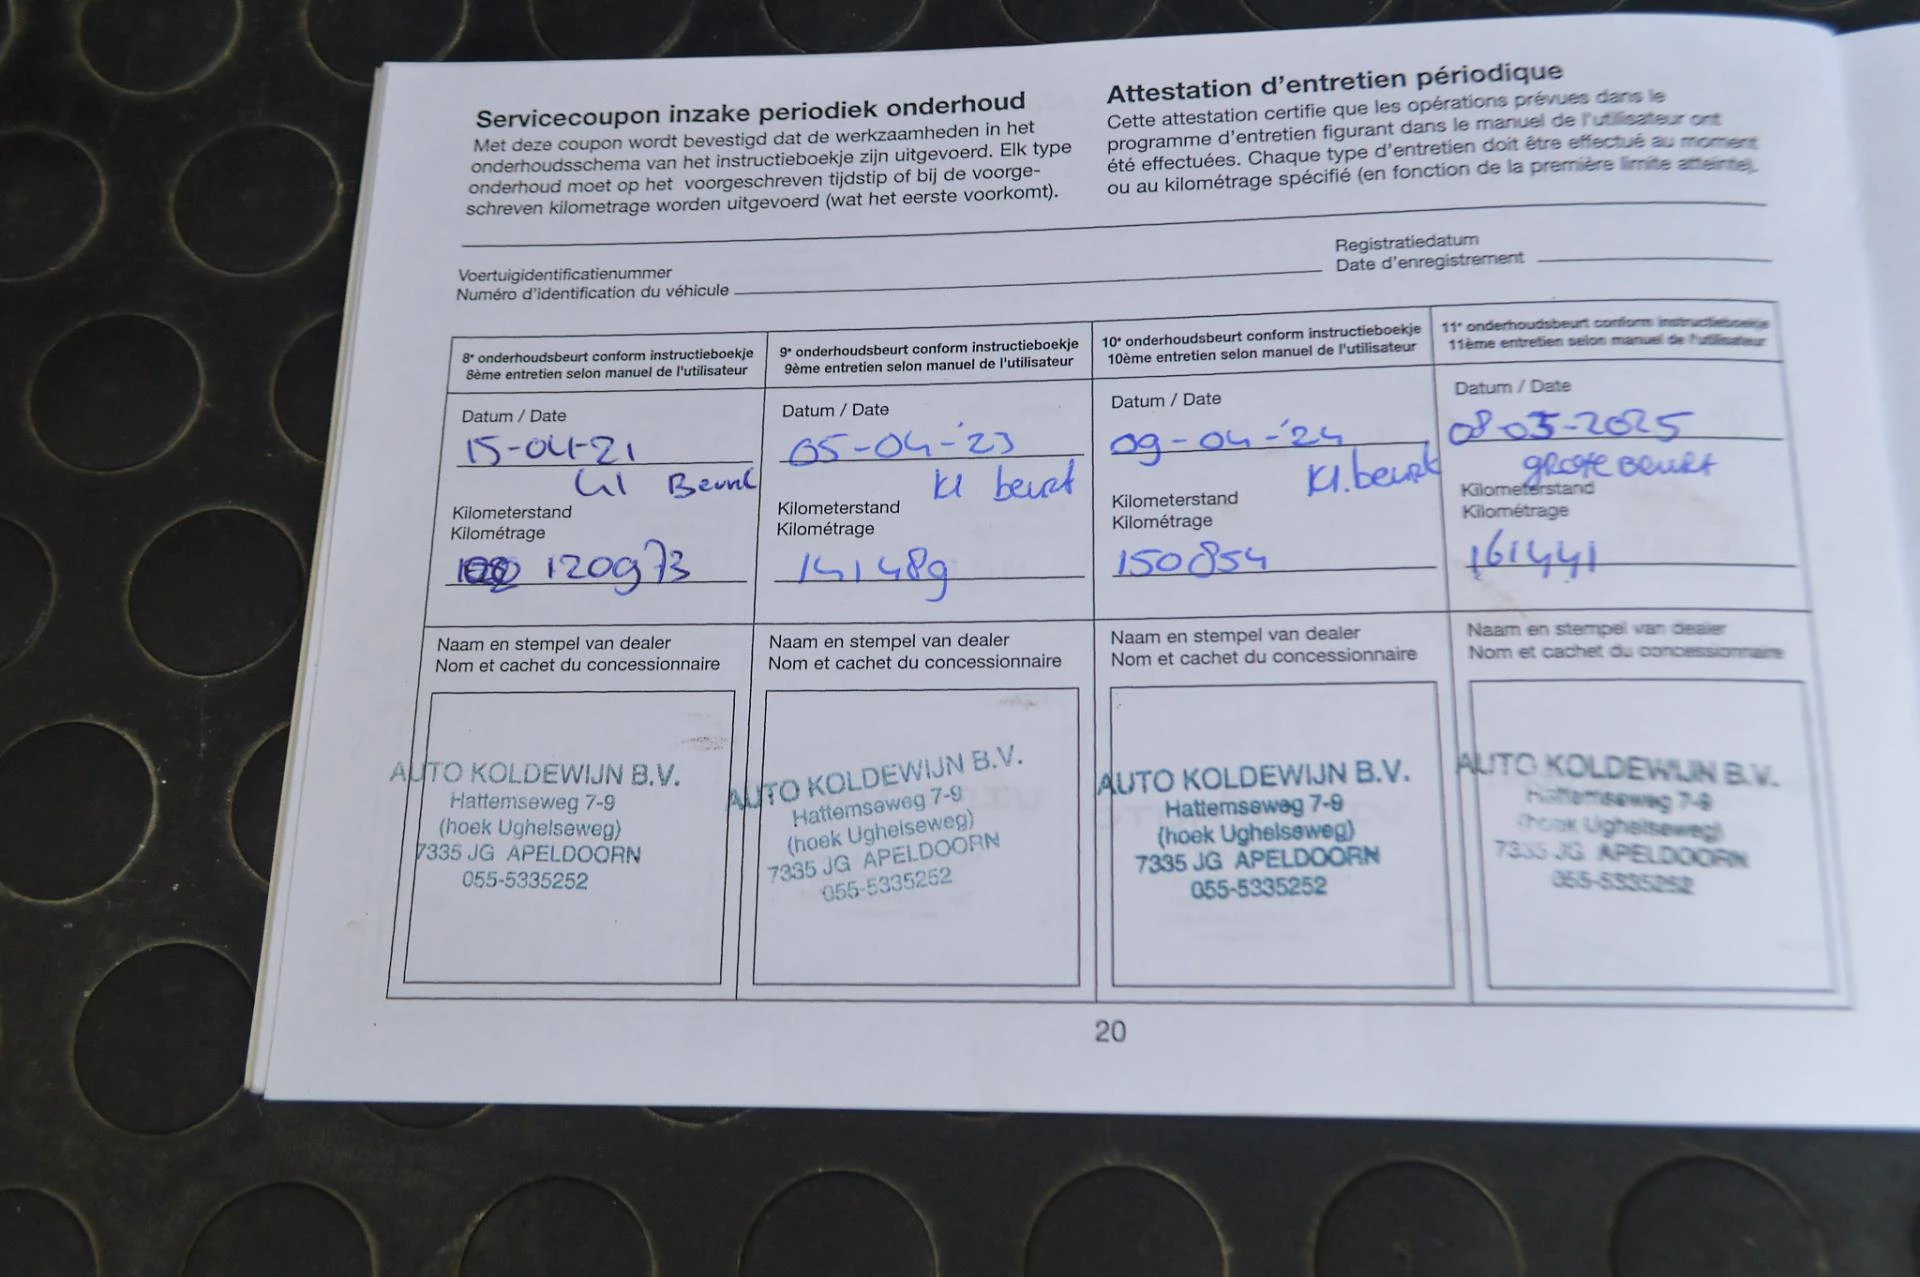 Servicecoupon inzake periodiek onderhoud
Met deze coupon wordt bevestigd dat de werkzaamheden in het
onderhoudsschema van het instructieboekje zijn uitgevoerd. Elk type
onderhoud moet op het voorgeschreven tijdstip of bij de voorge-
schreven kilometrage worden uitgevoerd (wat het eerste voorkomt).
Attestation d'entretien périodique
Cette attestation certifie que les opérations prévues dans le
programme d'entretien figurant dans le manuel de l'utilisateur ont
été effectuées. Chaque type d'entretien doit être effectué au moment
ou au kilométrage spécifié (en fonction de la première limite atteinte).
Voertuigidentificatienummer
Numéro d'identification du véhicule
Registratiedatum
Date d'enregistrement
8e onderhoudsbeurt conform instructieboekje
8ème entretien selon manuel de l'utilisateur
Datum / Date
15-04-21
Kl Beurt
Kilometerstand
Kilométrage
120973
Naam en stempel van dealer
Nom et cachet du concessionnaire
AUTO KOLDEWIJN B.V.
Hattemseweg 7-9
(hoek Ughelseweg)
7335 JG APELDOORN
055-5335252
9e onderhoudsbeurt conform instructieboekje
9ème entretien selon manuel de l'utilisateur
Datum / Date
05-04-'23
Kl beurt
Kilometerstand
Kilométrage
141489
Naam en stempel van dealer
Nom et cachet du concessionnaire
AUTO KOLDEWIJN B.V.
Hattemseweg 7-9
(hoek Ughelseweg)
7335 JG APELDOORN
055-5335252
10e onderhoudsbeurt conform instructieboekje
10ème entretien selon manuel de l'utilisateur
Datum / Date
09-04-'24
Kl. beurt
Kilometerstand
Kilométrage
150854
Naam en stempel van dealer
Nom et cachet du concessionnaire
AUTO KOLDEWIJN B.V.
Hattemseweg 7-9
(hoek Ughelseweg)
7335 JG APELDOORN
055-5335252
11e onderhoudsbeurt conform instructieboekje
11ème entretien selon manuel de l'utilisateur
Datum / Date
08-05-2025
grote Beurt
Kilometerstand
Kilométrage
161441
Naam en stempel van dealer
Nom et cachet du concessionnaire
AUTO KOLDEWIJN B.V.
Hattemseweg 7-9
(hoek Ughelseweg)
7335 JG APELDOORN
055-5335252
20